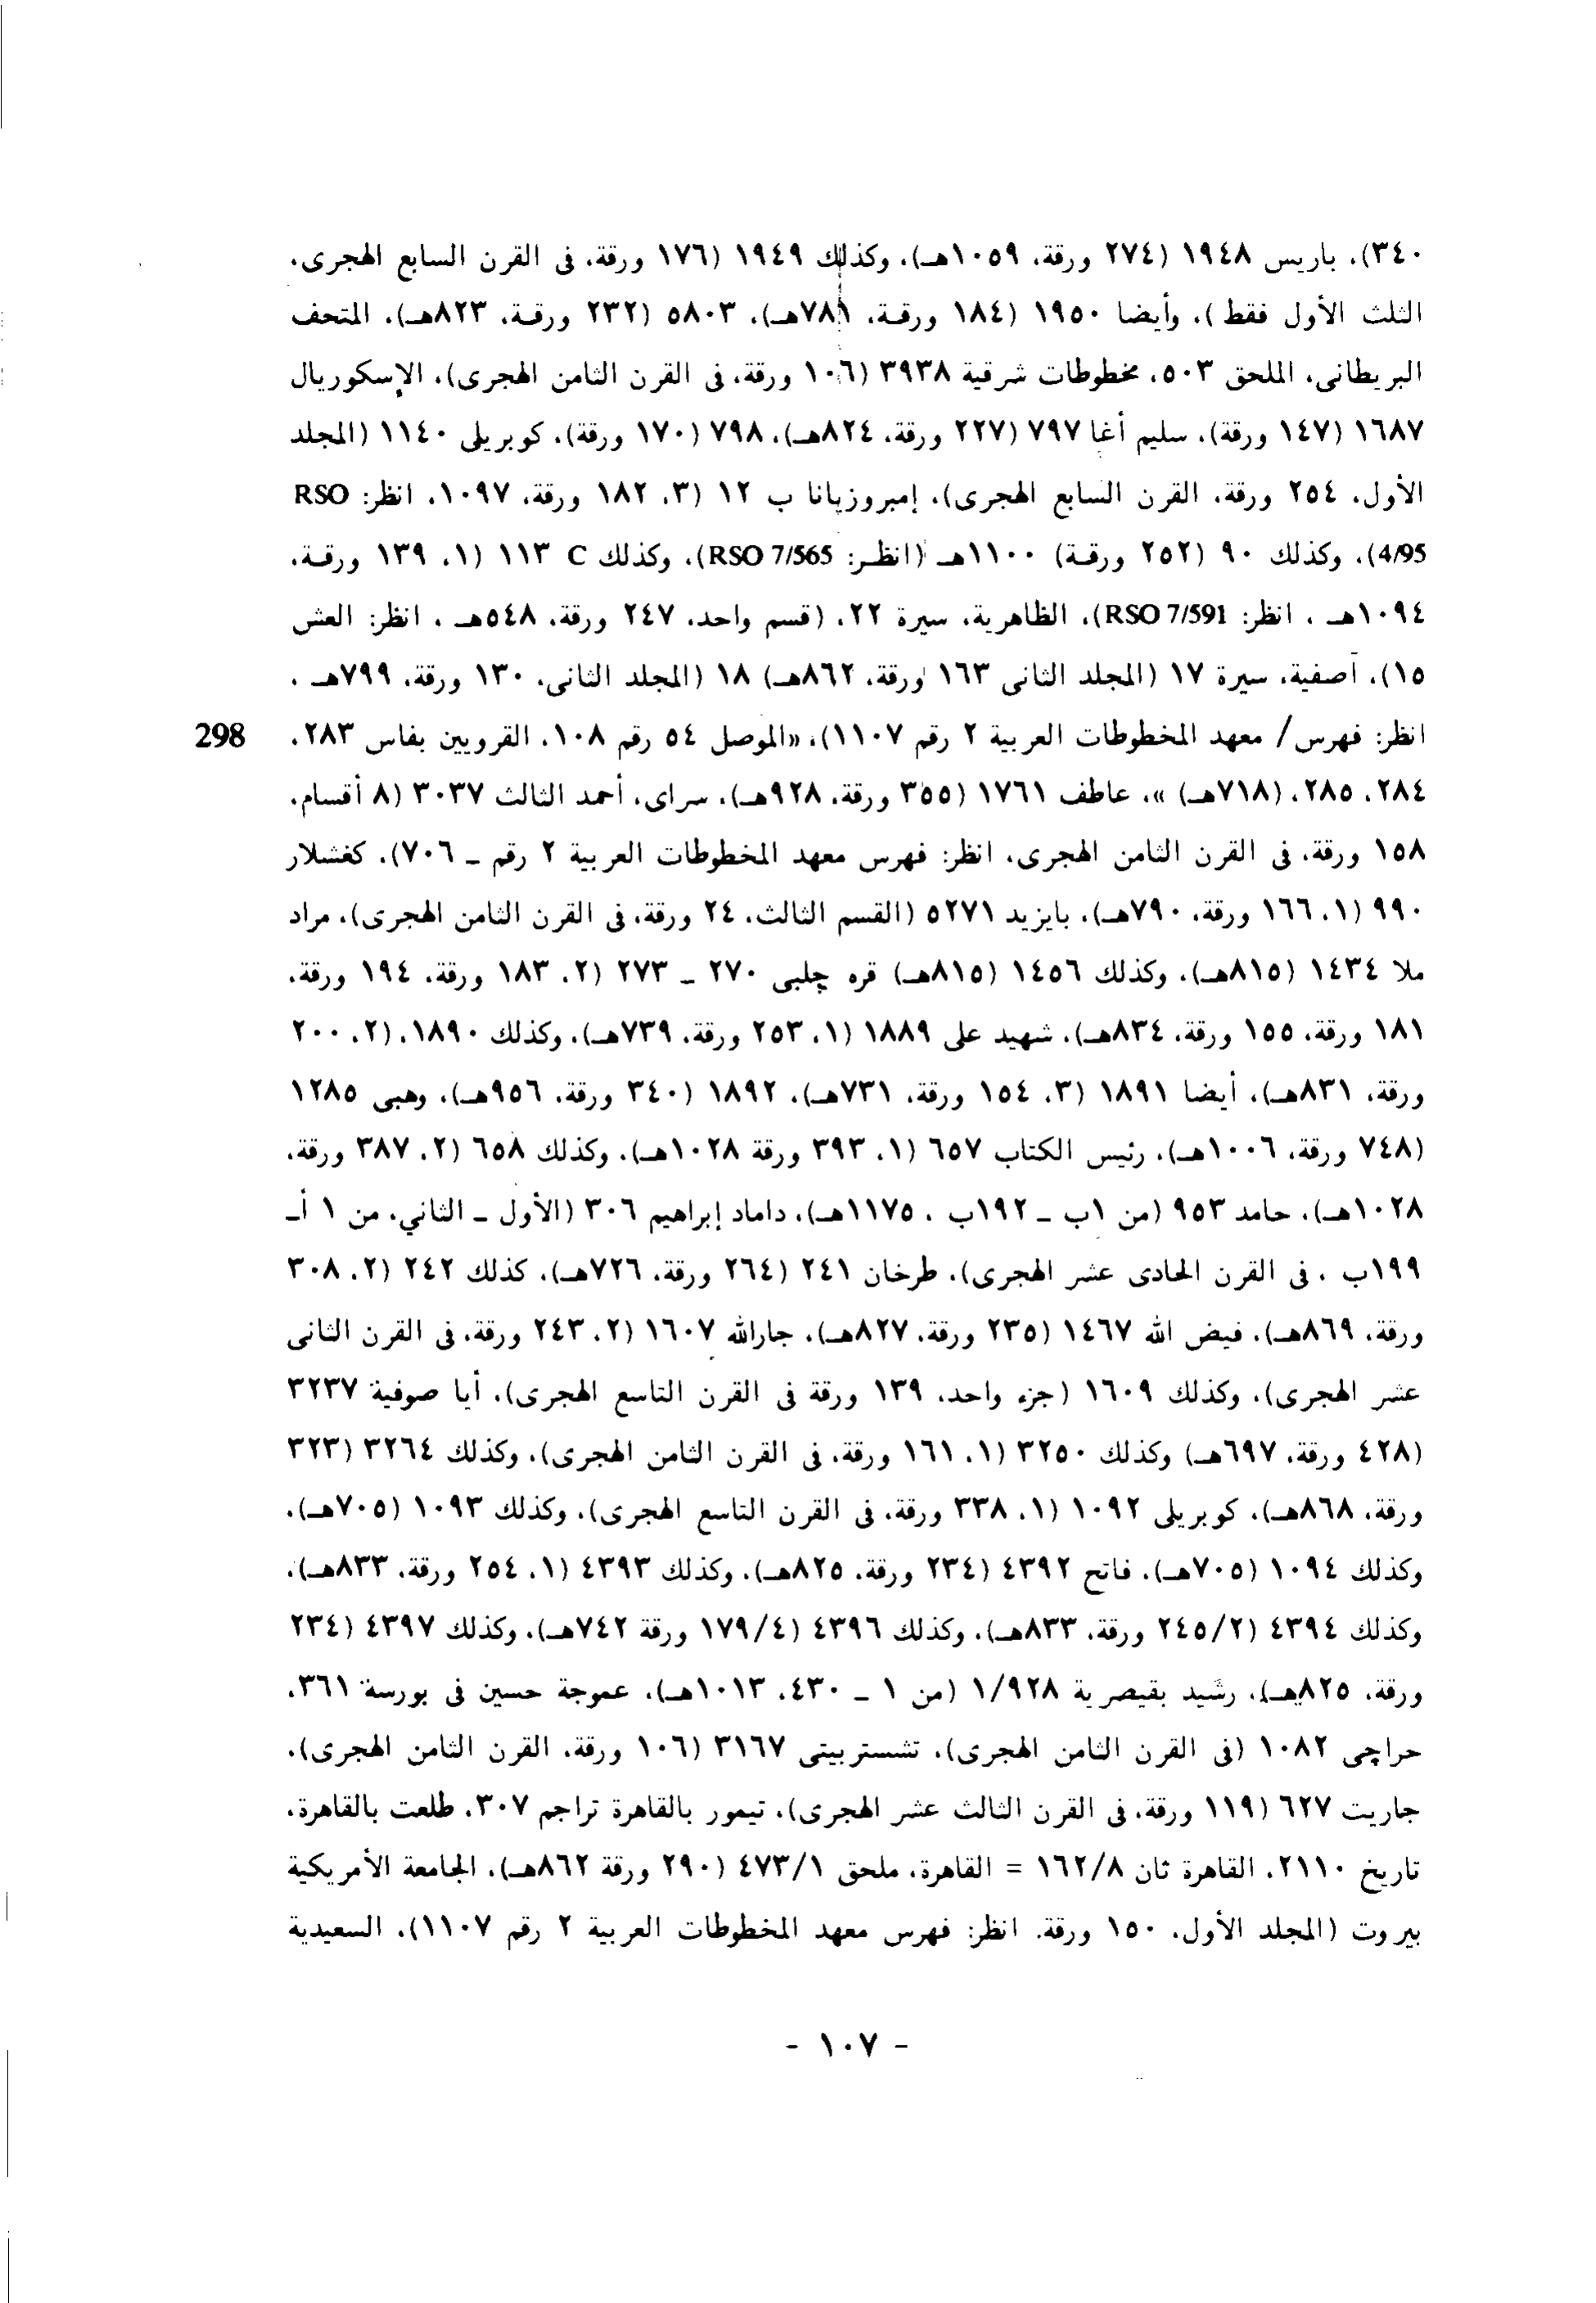 ٣٤٠)، باريس ١٩٤٨ (٢٧٤ ورقة، ١٠٥٩هـ)، وكذلك ١٩٤٩ (١٧٦ ورقة، فى القرن السابع الهجرى،
الثلث الأول فقط)، وأيضا ١٩٥٠ (١٨٤ ورقة، ٧٨١هـ)، ٥٨٠٣ (٢٣٢ ورقة، ٨٢٣هـ)، المتحف
البريطانى، الملحق ٥٠٣، مخطوطات شرقية ٣٩٣٨ (١٠٦ ورقة، فى القرن الثامن الهجرى)، الإسكوريال
١٦٨٧ (١٤٧ ورقة)، سليم أغا ٧٩٧ (٢٢٧ ورقة، ٨٢٤هـ)، ٧٩٨ (١٧٠ ورقة)، كوبريلى ١١٤٠ (المجلد
الأول، ٢٥٤ ورقة، القرن السابع الهجرى)، إمبروزيانا ب ١٢ (٣، ١٨٢ ورقة، ١٠٩٧، انظر: RSO
4/95)، وكذلك ٩٠ (٢٥٢ ورقة) ١١٠٠هـ (انظر: RSO 7/565)، وكذلك C ١١٣ (١، ١٣٩ ورقة،
١٠٩٤هـ ، انظر: RSO 7/591)، الظاهرية، سيرة ٢٢، (قسم واحد، ٢٤٧ ورقة، ٥٤٨هـ ، انظر: العش
١٥)، آصفية، سيرة ١٧ (المجلد الثانى ١٦٣ ورقة، ٨٦٢هـ) ١٨ (المجلد الثانى، ١٣٠ ورقة، ٧٩٩هـ ،
انظر: فهرس/ معهد المخطوطات العربية ٢ رقم ١١٠٧)، «الموصل ٥٤ رقم ١٠٨، القرويين بفاس ٢٨٣، 298
٢٨٤، ٢٨٥، (٧١٨هـ) »، عاطف ١٧٦١ (٣٥٥ ورقة، ٩٢٨هـ)، سراى، أحمد الثالث ٣٠٣٧ (٨ أقسام،
١٥٨ ورقة، فى القرن الثامن الهجرى، انظر: فهرس معهد المخطوطات العربية ٢ رقم ــ ٧٠٦)، كغشلار
٩٩٠ (١، ١٦٦ ورقة، ٧٩٠هـ)، بايزيد ٥٢٧١ (القسم الثالث، ٢٤ ورقة، فى القرن الثامن الهجرى)، مراد
ملا ١٤٣٤ (٨١٥هـ)، وكذلك ١٤٥٦ (٨١٥هـ) قره چلبى ٢٧٠ ــ ٢٧٣ (٢، ١٨٣ ورقة، ١٩٤ ورقة،
١٨١ ورقة، ١٥٥ ورقة، ٨٣٤هـ)، شهيد على ١٨٨٩ (١، ٢٥٣ ورقة، ٧٣٩هـ)، وكذلك ١٨٩٠، (٢، ٢٠٠
ورقة، ٨٣١هـ)، أيضا ١٨٩١ (٣، ١٥٤ ورقة، ٧٣١هـ)، ١٨٩٢ (٣٤٠ ورقة، ٩٥٦هـ)، وهبى ١٢٨٥
(٧٤٨ ورقة، ١٠٠٦هـ)، رئيس الكتاب ٦٥٧ (١، ٣٩٣ ورقة ١٠٢٨هـ)، وكذلك ٦٥٨ (٢، ٣٨٧ ورقة،
١٠٢٨هـ)، حامد ٩٥٣ (من ١ب ــ ١٩٢ب ، ١١٧٥هـ)، داماد إبراهيم ٣٠٦ (الأول ــ الثاني، من ١ أــ
١٩٩ب ، فى القرن الحادى عشر الهجرى)، طرخان ٢٤١ (٢٦٤ ورقة، ٧٢٦هـ)، كذلك ٢٤٢ (٢، ٣٠٨
ورقة، ٨٦٩هـ)، فيض الله ١٤٦٧ (٢٣٥ ورقة، ٨٢٧هـ)، جارالله ١٦٠٧ (٢، ٢٤٣ ورقة، فى القرن الثانى
عشر الهجرى)، وكذلك ١٦٠٩ (جزء واحد، ١٣٩ ورقة فى القرن التاسع الهجرى)، أيا صوفية ٣٢٣٧
(٤٢٨ ورقة، ٦٩٧هـ) وكذلك ٣٢٥٠ (١، ١٦١ ورقة، فى القرن الثامن الهجرى)، وكذلك ٣٢٦٤ (٣٢٣
ورقة، ٨٦٨هـ)، كوبريلى ١٠٩٢ (١، ٣٣٨ ورقة، فى القرن التاسع الهجرى)، وكذلك ١٠٩٣ (٧٠٥هـ)،
وكذلك ١٠٩٤ (٧٠٥هـ)، فاتح ٤٣٩٢ (٢٣٤ ورقة، ٨٢٥هـ)، وكذلك ٤٣٩٣ (١، ٢٥٤ ورقة، ٨٣٣هـ)،
وكذلك ٤٣٩٤ (٢/‏٢٤٥ ورقة، ٨٣٣هـ)، وكذلك ٤٣٩٦ (٤/‏١٧٩ ورقة ٧٤٢هـ)، وكذلك ٤٣٩٧ (٢٣٤
ورقة، ٨٢٥هـ)، رشيد بقيصرية ٩٢٨/‏١ (من ١ ــ ٤٣٠، ١٠١٣هـ)، عموجة حسين فى بورسة ٣٦١،
حراچى ١٠٨٢ (فى القرن الثامن الهجرى)، تشستربيتى ٣١٦٧ (١٠٦ ورقة، القرن الثامن الهجرى)،
جاريت ٦٢٧ (١١٩ ورقة، فى القرن الثالث عشر الهجرى)، تيمور بالقاهرة تراجم ٣٠٧، طلعت بالقاهرة،
تاريخ ٢١١٠، القاهرة ثان ٨/‏١٦٢ = القاهرة، ملحق ١/‏٤٧٣ (٢٩٠ ورقة ٨٦٢هـ)، الجامعة الأمريكية
بيروت (المجلد الأول، ١٥٠ ورقة. انظر: فهرس معهد المخطوطات العربية ٢ رقم ١١٠٧)، السعيدية
- ١٠٧ -